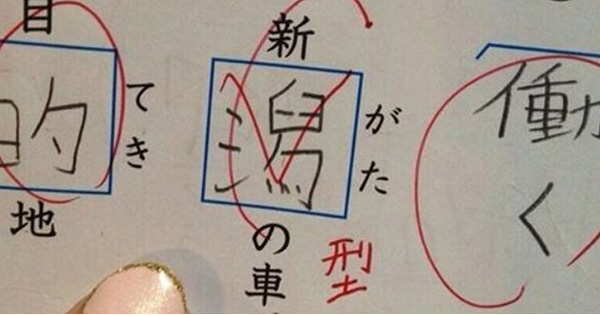 働く
新潟の車
がた
型
目的地
てき